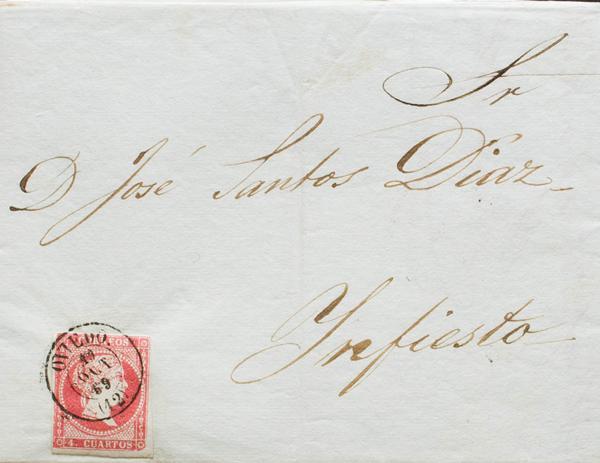 Sr
D José Santos Díaz
Infiesto
OVIEDO.
OCUT
59
(12)
4. CUARTOS